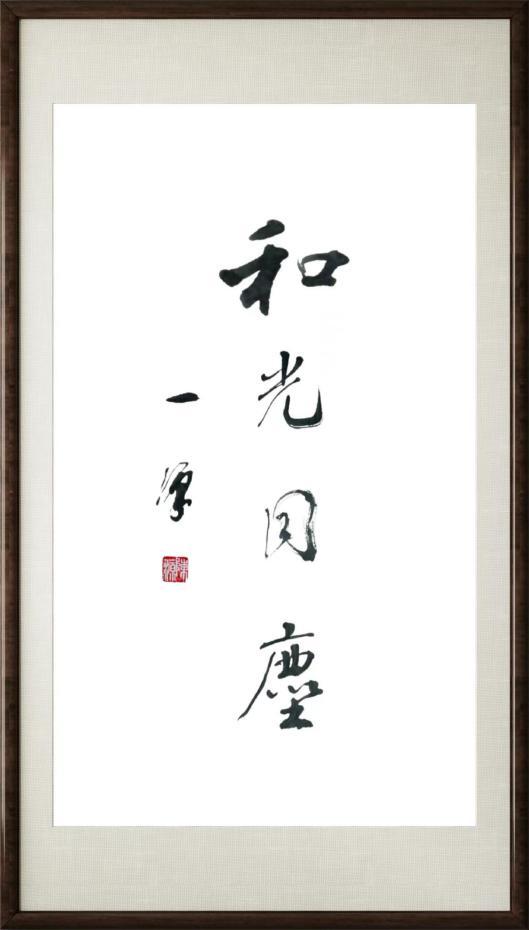 和光同塵
一源